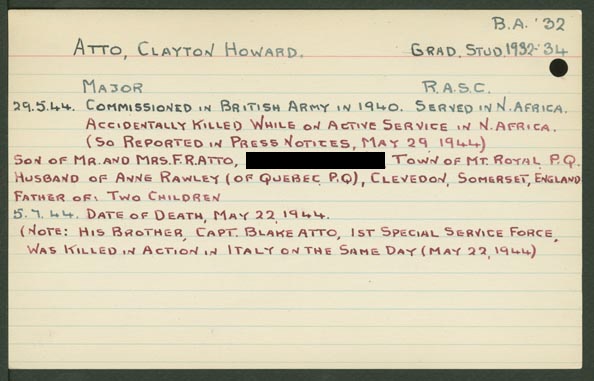 B.A. '32
ATTO, CLAYTON HOWARD. GRAD. STUD. 1932-'34
MAJOR R.A.S.C.
29.5.44. COMMISSIONED IN BRITISH ARMY IN 1940. SERVED IN N. AFRICA.
ACCIDENTALLY KILLED WHILE ON ACTIVE SERVICE IN N. AFRICA.
(SO REPORTED IN PRESS NOTICES, MAY 29, 1944)
SON OF MR. AND MRS. F.R. ATTO, TOWN OF MT. ROYAL, P.Q.
HUSBAND OF ANNE RAWLEY (OF QUEBEC, P.Q), CLEVEDON, SOMERSET, ENGLAND
FATHER OF: TWO CHILDREN
5.7.44. DATE OF DEATH, MAY 22, 1944.
(NOTE: HIS BROTHER, CAPT. BLAKE ATTO, 1ST SPECIAL SERVICE FORCE,
WAS KILLED IN ACTION IN ITALY ON THE SAME DAY (MAY 22, 1944)